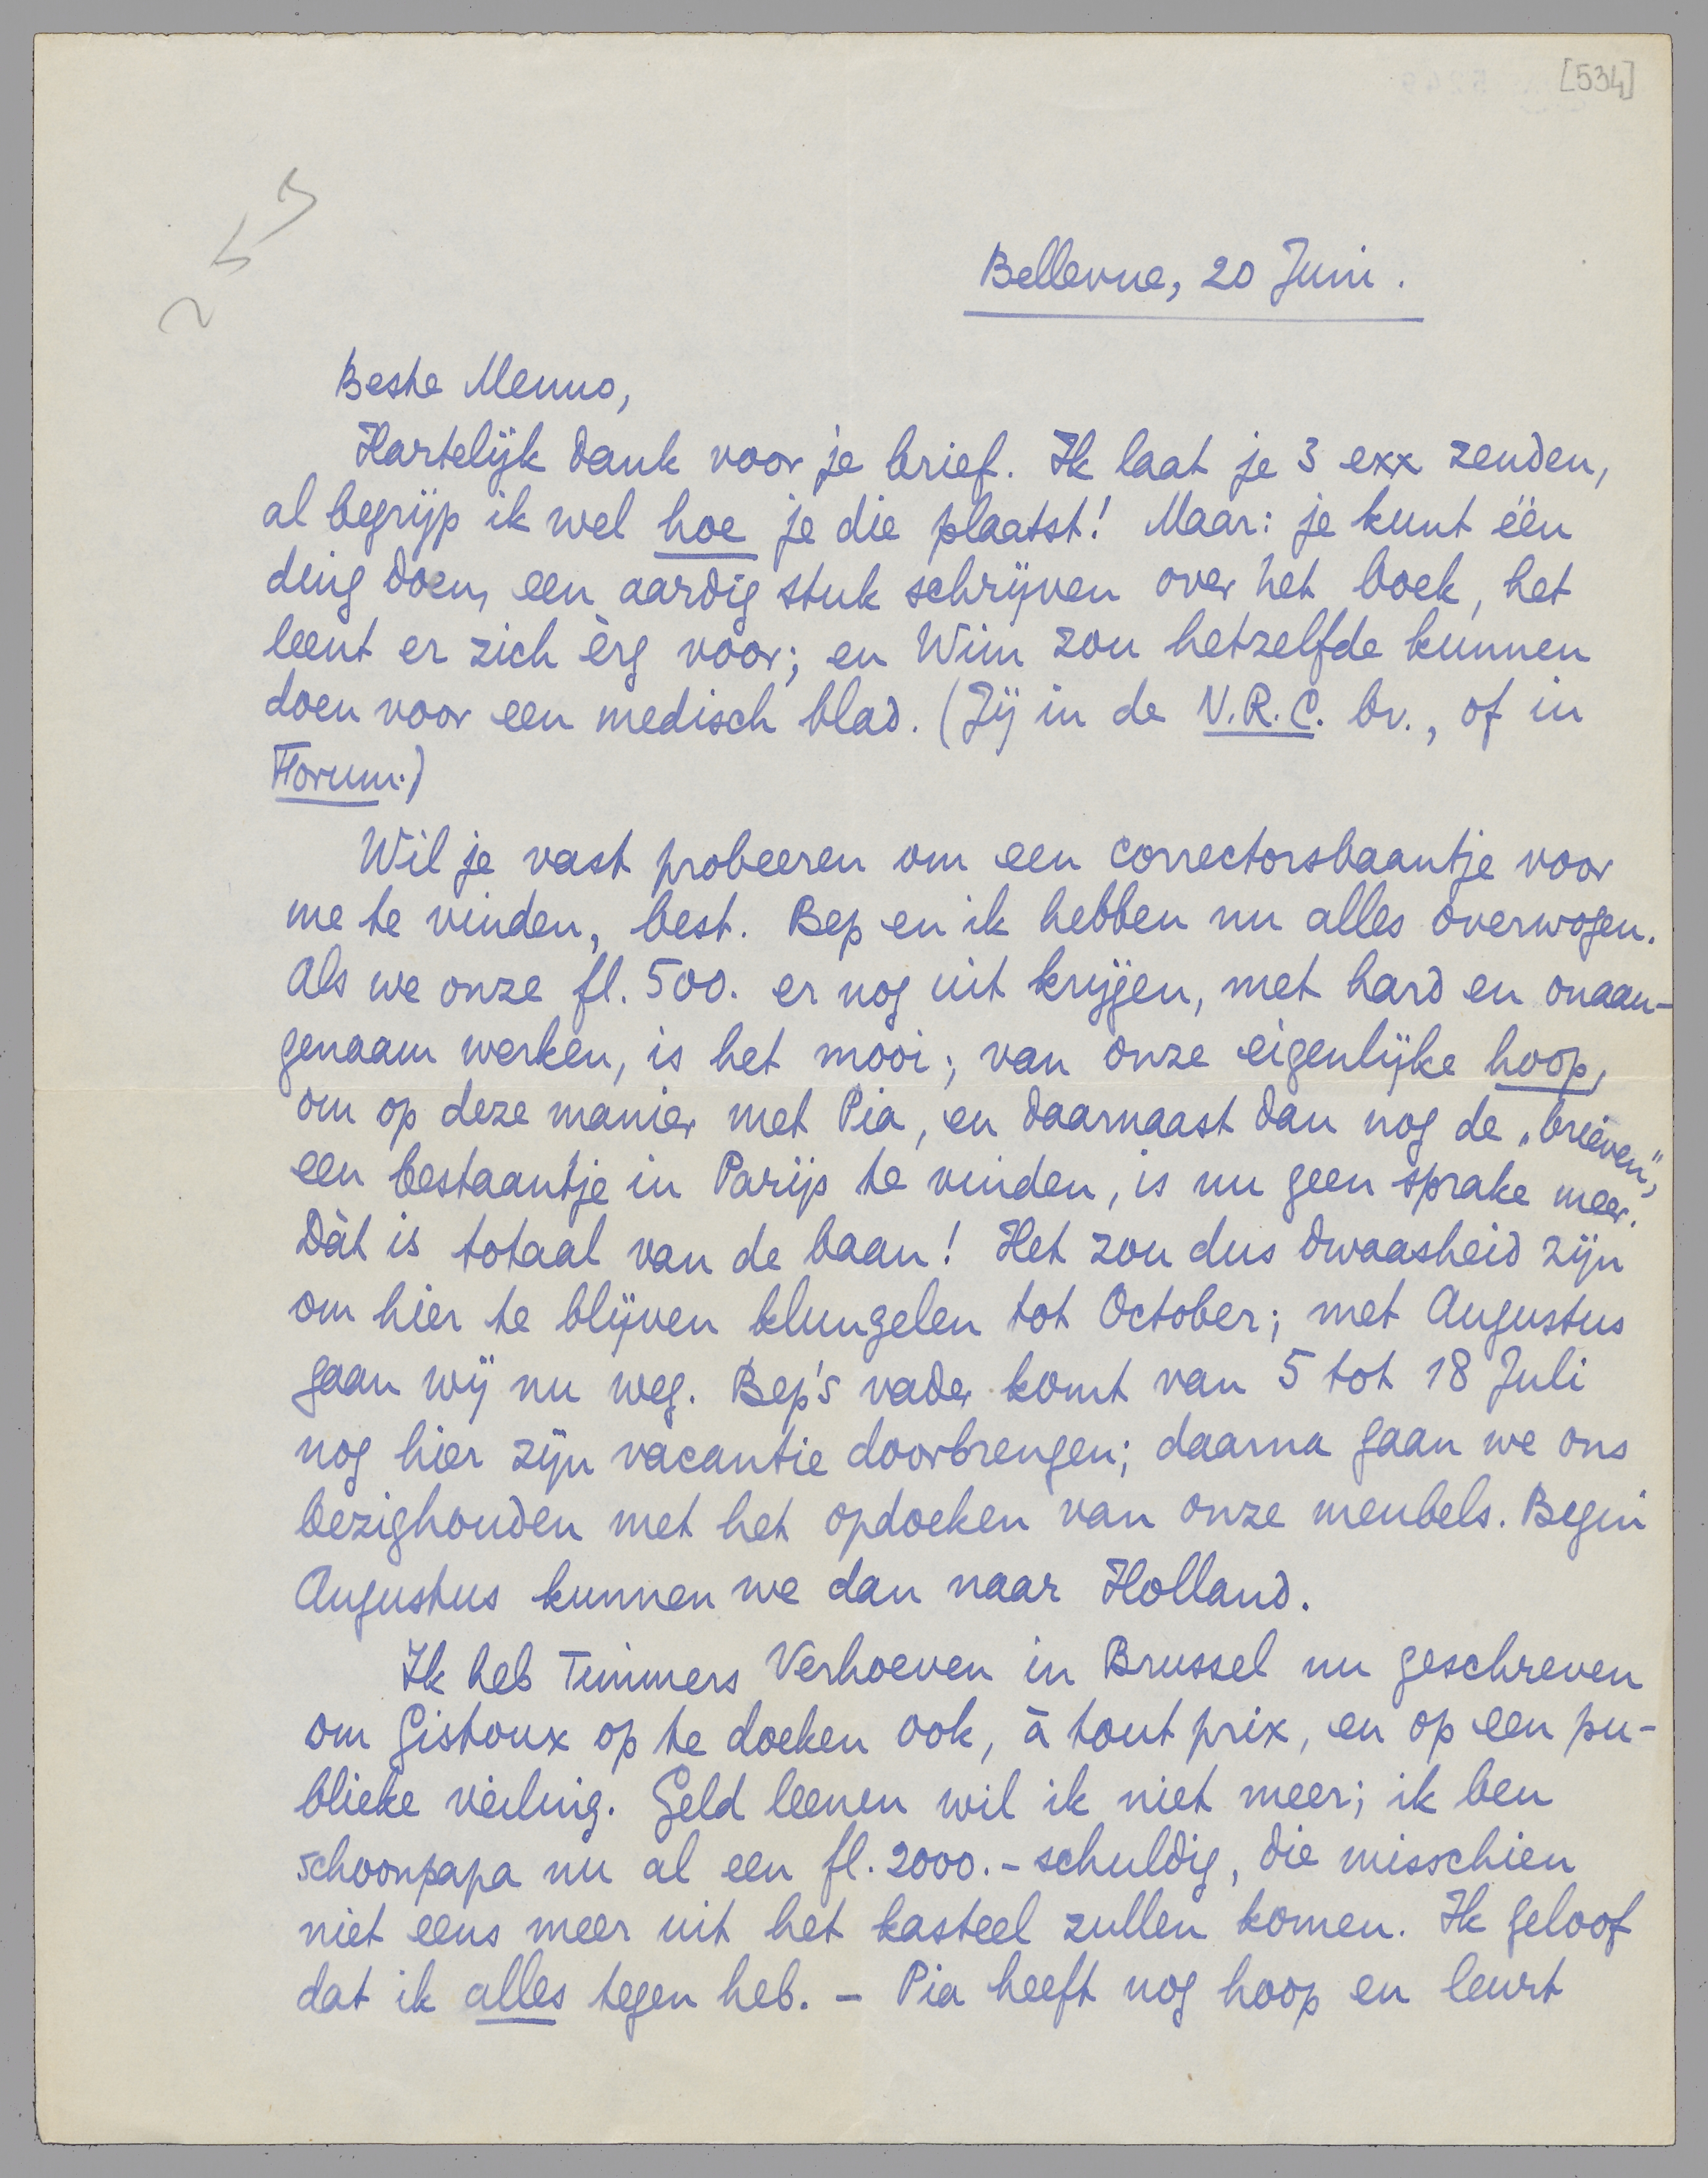 [534]
Bellevue, 20 Juni.
Beste Menno,
Hartelijk dank voor je brief. Ik laat je 3 exx zenden,
al begrijp ik wel hoe je die plaatst! Maar: je kunt één
ding doen, een aardig stuk schrijven over het boek, het
leent er zich èrg voor; en Wim zou hetzelfde kunnen
doen voor een medisch blad. (Jij in de N.R.C. bv., of in
Forum.)
Wil je vast probeeren om een correctorsbaantje voor
me te vinden, best. Bep en ik hebben nu alles overwogen.
Als we onze fl. 500. er nog uit krijgen, met hard en onaan-
genaam werken, is het mooi; van onze eigenlijke hoop,
om op deze manier met Pia, en daarnaast dan nog de „brieven",
een bestaantje in Parijs te vinden, is nu geen sprake meer.
Dàt is totaal van de baan! Het zou dus dwaasheid zijn
om hier te blijven klungelen tot October; met Augustus
gaan wij nu weg. Bep's vader komt van 5 tot 18 Juli
nog hier zijn vacantie doorbrengen; daarna gaan we ons
bezighouden met het opdoeken van onze meubels. Begin
Augustus kunnen we dan naar Holland.
Ik heb Timmers Verhoeven in Brussel nu geschreven
om Gistoux op te doeken ook, à tout prix, en op een pu-
blieke veiling. Geld leenen wil ik niet meer; ik ben
schoonpapa nu al een fl. 2000.- schuldig, die misschien
niet eens meer uit het kasteel zullen komen. Ik geloof
dat ik alles tegen heb. - Pia heeft nog hoop en leurt